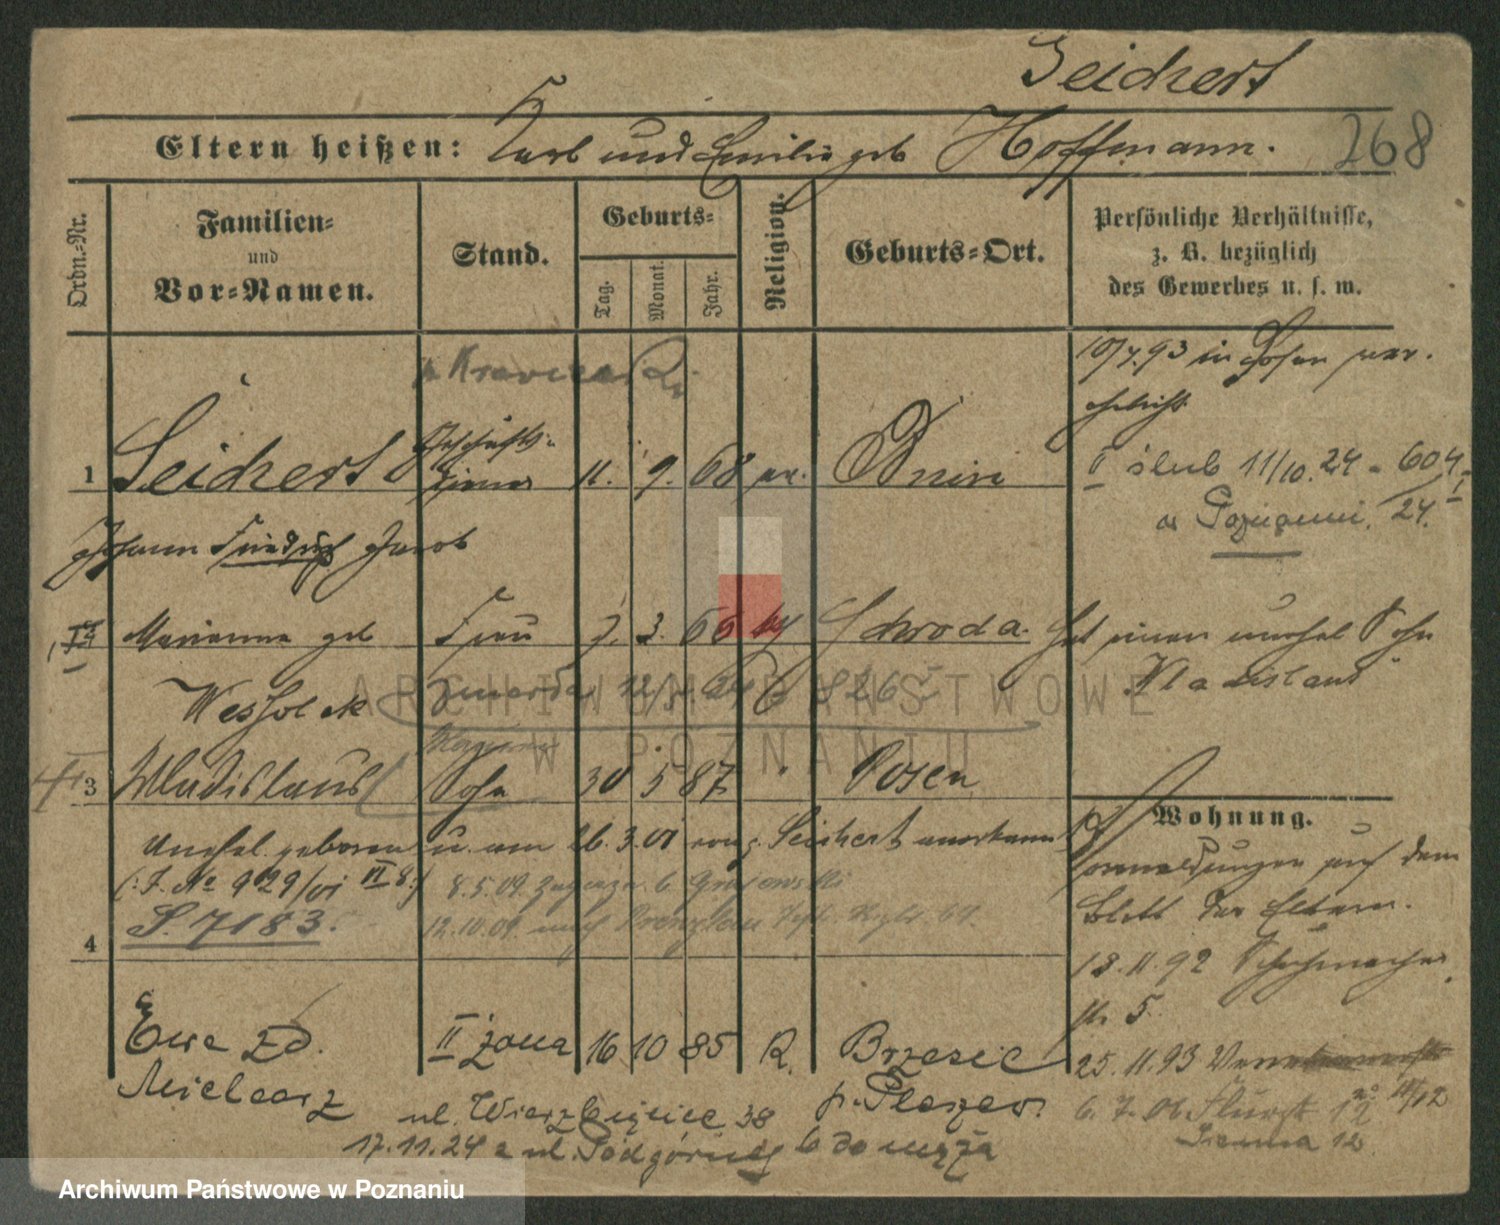 Seichert
Eltern heißen: Karl und Emilie geb Hoffmann.
268
Ordn.-Nr.
Familien- und Vor-Namen.
Stand.
Geburts-
Tag.
Monat.
Jahr.
Religion.
Geburts-Ort.
Persönliche Verhältnisse,
z. B. bezüglich
des Gewerbes u. s. w.
10/7.93 in Posen ver-
ehelicht
1 Seichert 11. 9. 68 ev. Bnin
II ślub 11/10.24 - 604/24.
w Poznaniu
Johann Friedrich Jacob
Marianna geb Frau 7. 3. 66 kt Schroda.
Hat einen unehel Sohn
Wladislaus
zmarła
3 Wladislaus Sohn 30 5 87 " Posen
Wohnung.
Unehel. geboren u. am 26. 3. 01 von Seichert anerkannt
(J. No 929/01 VI 8.)
S. 7183.
4
Vormeldungen auf dem
Blatt der Eltern.
18.11.92 Schuhmacher
str 5
25.11.93
8.5.09
12.10.09 nach
Ewa zd. II żona 16 10 85 R. Brzezie
Mielcarz p. Pleszew
ul. Wierzbięcice 38
6. 7. 06
17.11.24 z ul. Podgórnej 6 do męża
ARCHIWUM PAŃSTWOWE
W POZNANIU
Archiwum Państwowe w Poznaniu